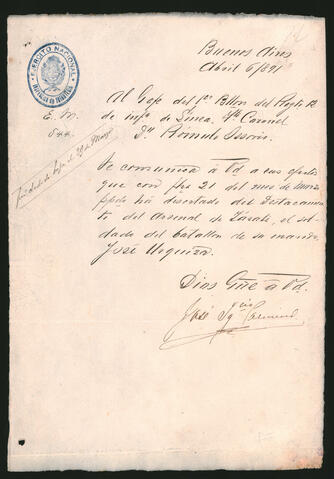 Buenos Aires
Abril 6/891
EJERCITO NACIONAL
E. M.
544
Al Gefe del 1er Batllon del Regto 12
de infa de Linea, Tte Coronel
Dn Romulo
Se comunica à Vd a sus efectos
que con fha 21 del mes de marzo
ppdo ha desertado del Destacamen
to del Arsenal de Zárate, el sol
dado del batallon de su mando,
José Urquiza.
Dios Gue à Vd.
José Igcio